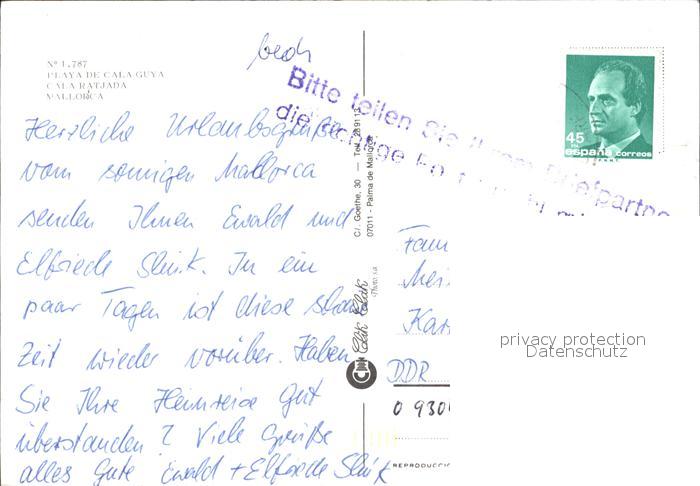 bech
Nº 1.787
PLAYA DE CALA GUYA
CALA RATJADA
MALLORCA
Bitte teilen Sie Ihrem Briefpartner
die richtige
45
españa correos
Herzliche Urlaubsgrüße
vom sonnigen Mallorca
senden Ihnen Ewald und
Elfriede Slink. In ein
paar Tagen ist diese schöne
Zeit wieder vorüber. Haben
Sie Ihre Heimreise gut
überstanden? Viele Grüße
alles Gute Ewald + Elfriede Slink
C/. Goethe, 30 — Tel. 289113
07011 - Palma de Mallorca
Clik Clak
Fam
Mei
Kar
DDR
O 930
REPRODUCCI
privacy protection
Datenschutz